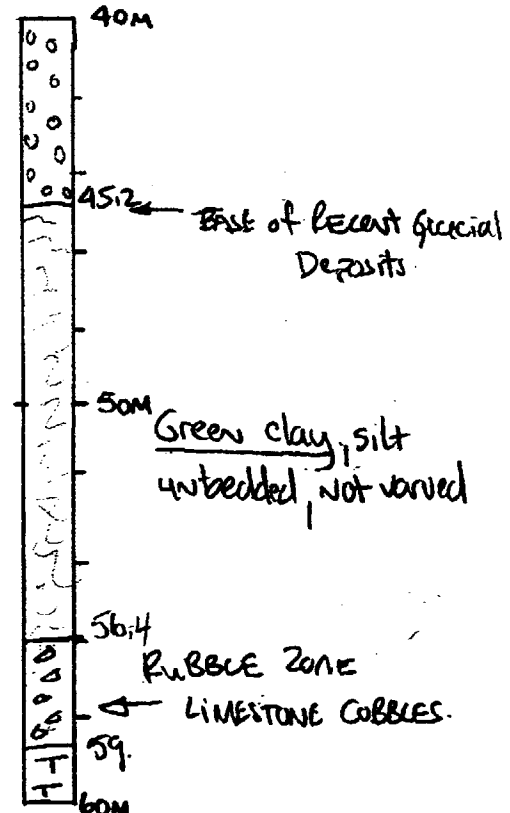 40M
45.2
BASE of RECENT Glacial
Deposits.
50M
Green clay, silt
unbedded, not varved
56.4
RUBBLE ZONE
LIMESTONE COBBLES.
59.
T
T
T
60M